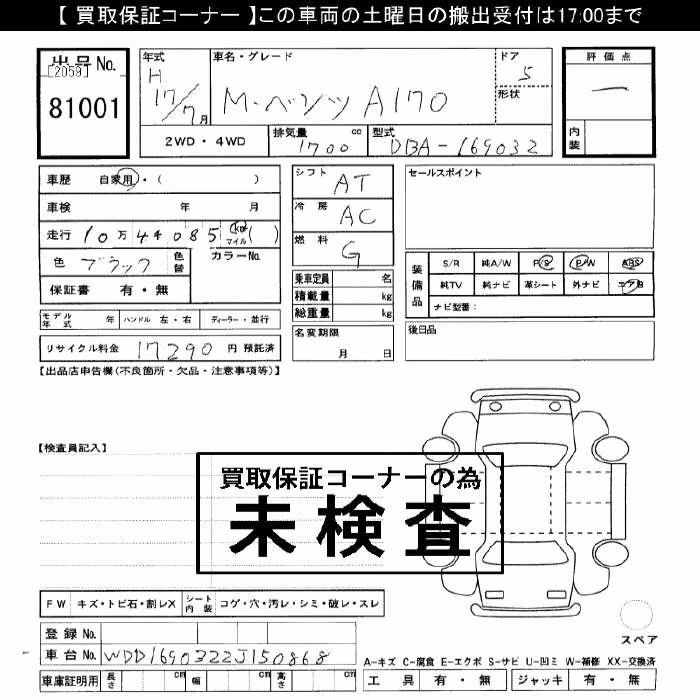 【 買取保証コーナー 】この車両の土曜日の搬出受付は17:00まで
出品No. [2059] 81001
年式 H 17/7月
車名・グレード M・ベンツ A170
ドア 5
形状
評価点 一
内装
2WD・4WD
排気量 1700 cc
型式 DBA-169032
車歴 自家用・( )
車検 年 月
走行 10万44085 (km マイル)( )
色 ブラック 色替 カラーNo.
保証書 有・無
シフト AT
冷房 AC
燃料 G
乗車定員 名
積載量 kg
総重量 kg
セールスポイント
装備品 S/R 純A/W P/S P/W ABS
純TV 純ナビ 革シート 外ナビ エアB
ナビ型番:
モデル年式 年 ハンドル 左・右 ディーラー・並行
名変期限 月 日
後日品
リサイクル料金 17290 円 預託済
【出品店申告欄(不良箇所・欠品・注意事項等)】
【検査員記入】
買取保証コーナーの為
未検査
FW キズ・トビ石・割レX シート内装 コゲ・穴・汚レ・シミ・破レ・スレ
スペア
登録No.
車台No. WDD1690322J150868
A-キズ C-腐食 E-エクボ S-サビ U-凹ミ W-補修 XX-交換済
車庫証明用 長さ cm 幅 cm 高さ cm
工具 有・無 ジャッキ 有・無